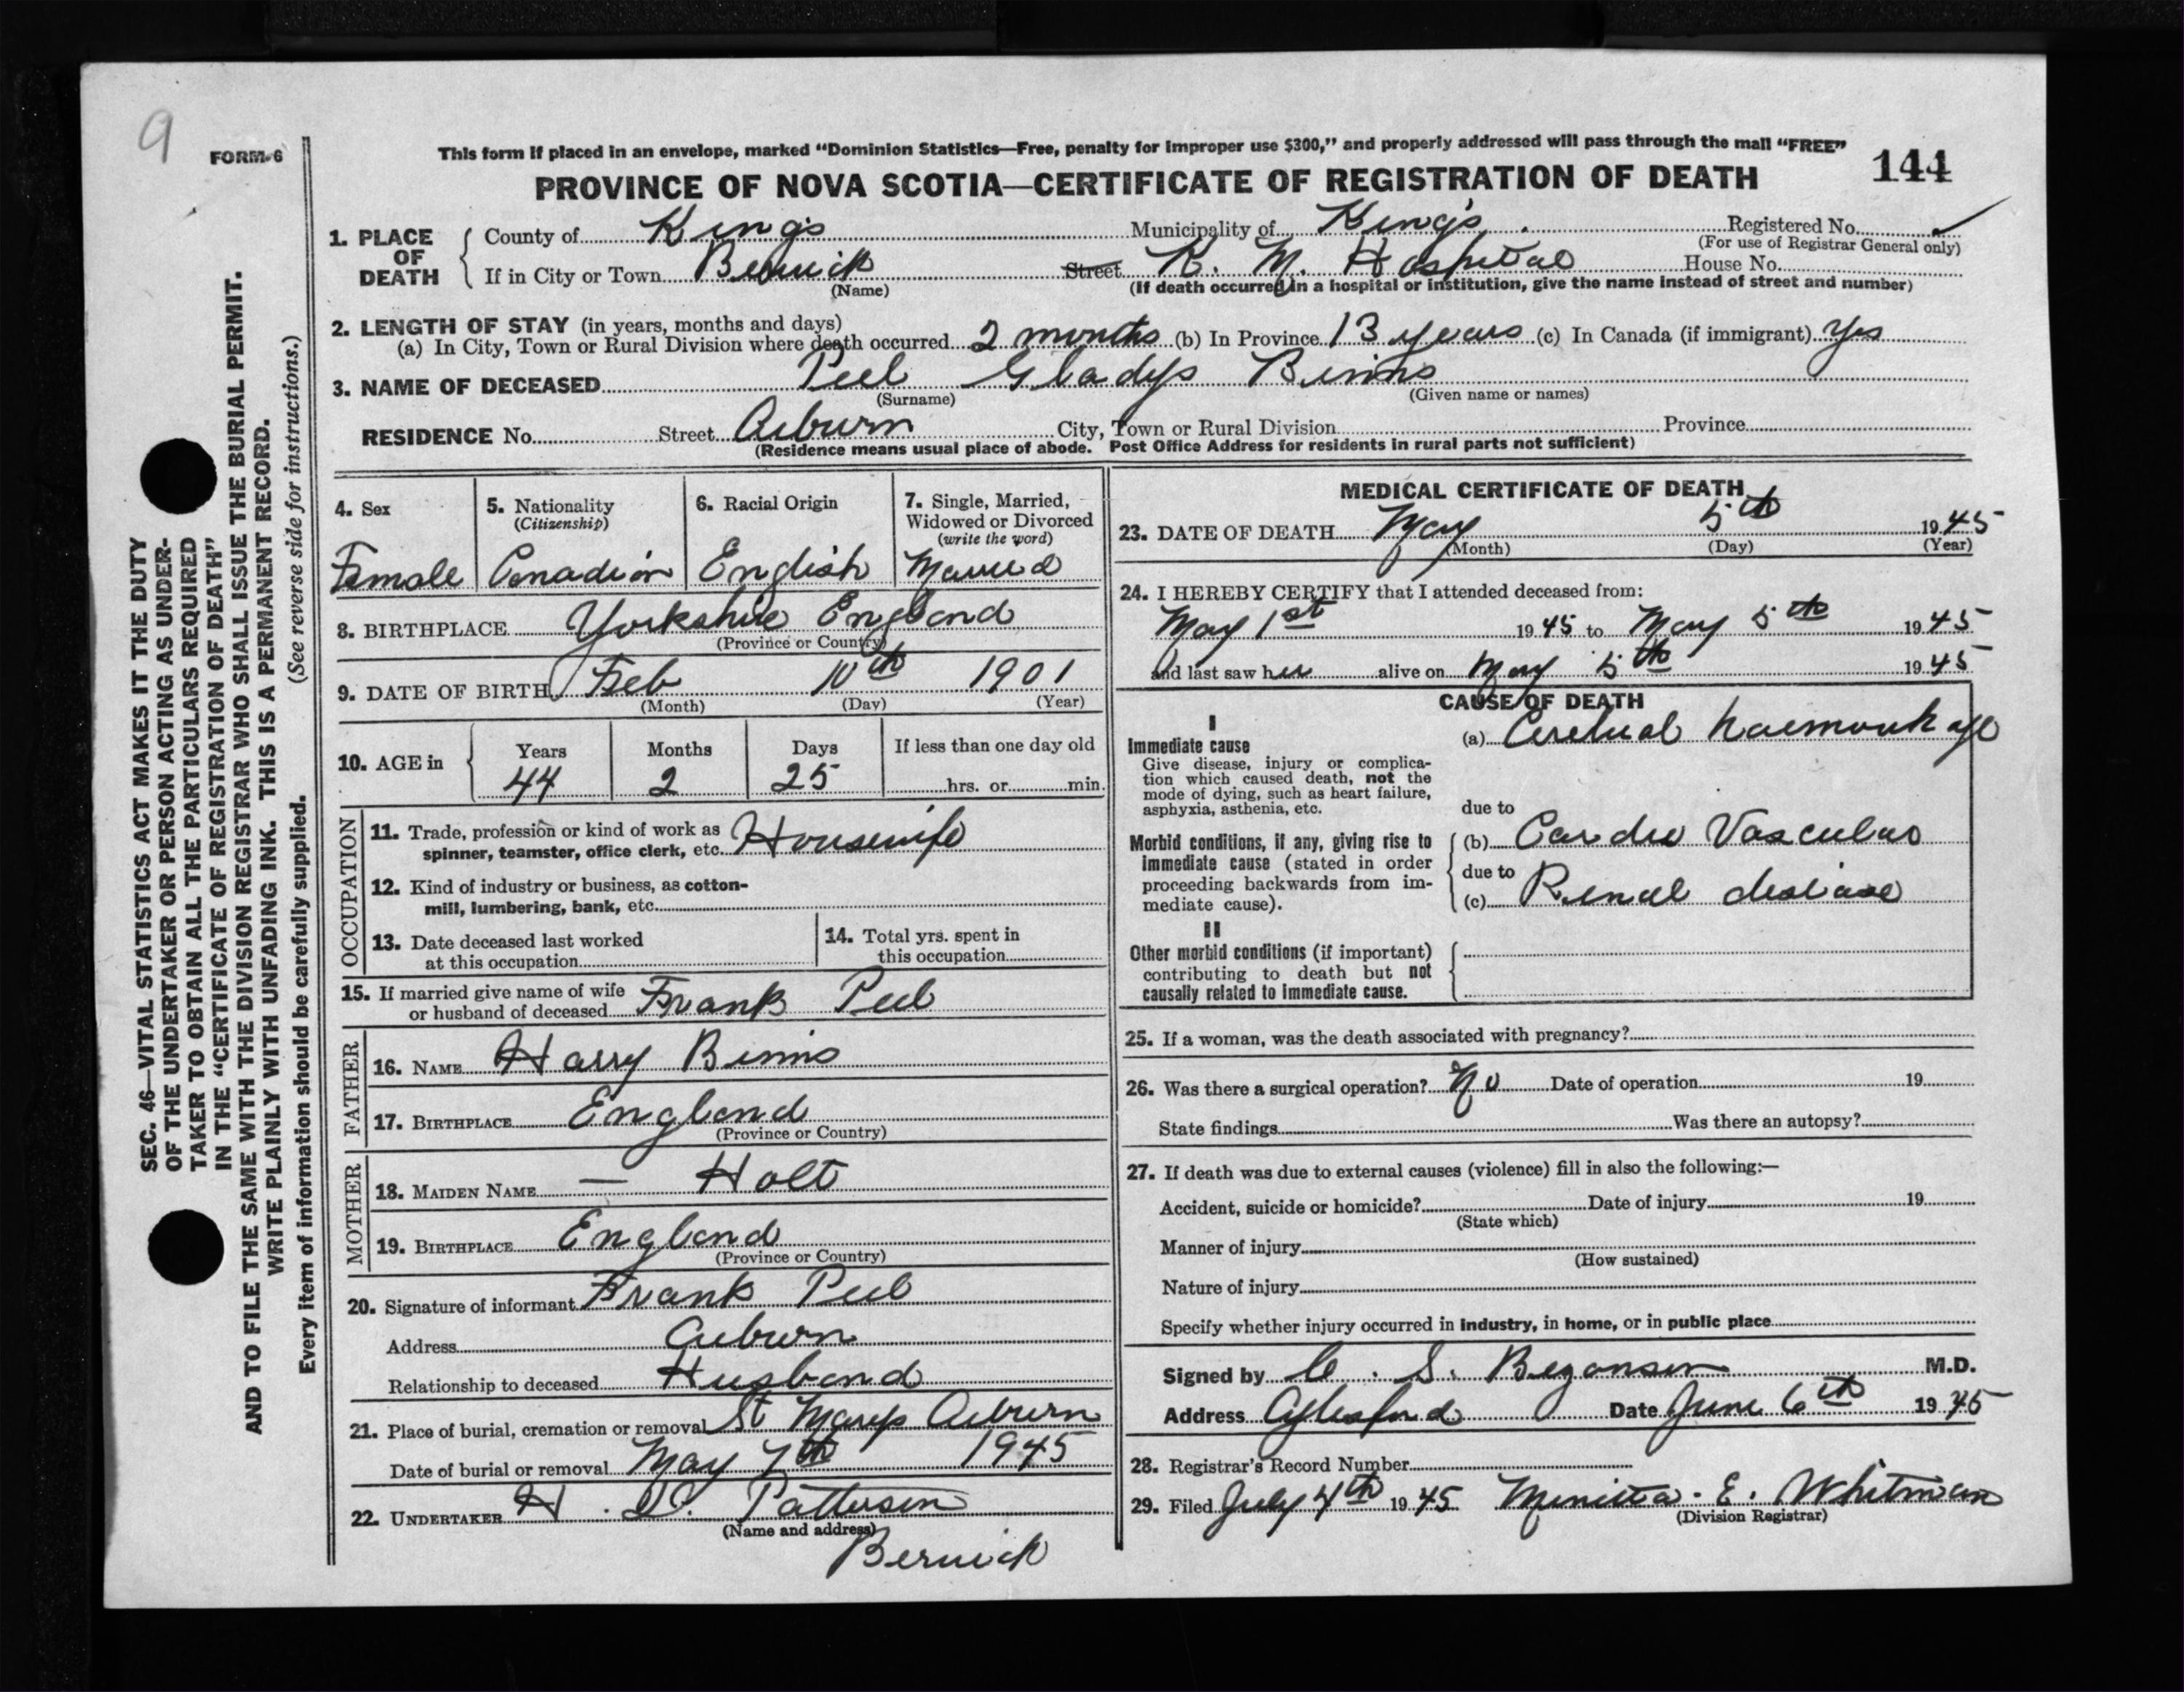 9
FORM-6
This form if placed in an envelope, marked “Dominion Statistics—Free, penalty for improper use $300,” and properly addressed will pass through the mail “FREE”
144
PROVINCE OF NOVA SCOTIA—CERTIFICATE OF REGISTRATION OF DEATH
1. PLACE OF DEATH
County of Kings Municipality of Kings Registered No. ✓
(For use of Registrar General only)
If in City or Town Berwick Street K. M. Hospital House No.
(Name) (If death occurred in a hospital or institution, give the name instead of street and number)
2. LENGTH OF STAY (in years, months and days)
(a) In City, Town or Rural Division where death occurred 2 months (b) In Province 13 years (c) In Canada (if immigrant) Yes
3. NAME OF DECEASED Peel Gladys Binns
(Surname) (Given name or names)
RESIDENCE No. Street Auburn City, Town or Rural Division Province
(Residence means usual place of abode. Post Office Address for residents in rural parts not sufficient)
4. Sex
Female
5. Nationality
(Citizenship)
Canadian
6. Racial Origin
English
7. Single, Married,
Widowed or Divorced
(write the word)
Married
8. BIRTHPLACE Yorkshire England
(Province or Country)
9. DATE OF BIRTH Feb 10th 1901
(Month) (Day) (Year)
10. AGE in
Years Months Days If less than one day old
44 2 25 hrs. or min.
OCCUPATION
11. Trade, profession or kind of work as
spinner, teamster, office clerk, etc. Housewife
12. Kind of industry or business, as cotton-
mill, lumbering, bank, etc.
13. Date deceased last worked
at this occupation
14. Total yrs. spent in
this occupation
15. If married give name of wife
or husband of deceased Frank Peel
FATHER
16. NAME Harry Binns
17. BIRTHPLACE England
(Province or Country)
MOTHER
18. MAIDEN NAME — Holt
19. BIRTHPLACE England
(Province or Country)
20. Signature of informant Frank Peel
Address Auburn
Relationship to deceased Husband
21. Place of burial, cremation or removal St Marys Auburn
Date of burial or removal May 7th 1945
22. UNDERTAKER H. Patterson
(Name and address)
Berwick
MEDICAL CERTIFICATE OF DEATH
23. DATE OF DEATH May 5th 1945
(Month) (Day) (Year)
24. I HEREBY CERTIFY that I attended deceased from:
May 1st 1945 to May 5th 1945
and last saw her alive on May 5th 1945
CAUSE OF DEATH
I
Immediate cause
Give disease, injury or complica-
tion which caused death, not the
mode of dying, such as heart failure,
asphyxia, asthenia, etc.
(a) Cerebral haemorrhage
due to
Morbid conditions, if any, giving rise to
immediate cause (stated in order
proceeding backwards from im-
mediate cause).
(b) Cardio Vascular
due to
(c) Renal disease
II
Other morbid conditions (if important)
contributing to death but not
causally related to immediate cause.
25. If a woman, was the death associated with pregnancy?
26. Was there a surgical operation? No Date of operation 19
State findings Was there an autopsy?
27. If death was due to external causes (violence) fill in also the following:—
Accident, suicide or homicide? Date of injury 19
(State which)
Manner of injury
(How sustained)
Nature of injury
Specify whether injury occurred in industry, in home, or in public place
Signed by C. S. Bezanson M.D.
Address Aylesford Date June 6th 1945
28. Registrar's Record Number
29. Filed July 4th 1945 Minitta. E. Whitman
(Division Registrar)
SEC. 46—VITAL STATISTICS ACT MAKES IT THE DUTY
OF THE UNDERTAKER OR PERSON ACTING AS UNDER-
TAKER TO OBTAIN ALL THE PARTICULARS REQUIRED
IN THE “CERTIFICATE OF REGISTRATION OF DEATH”
AND TO FILE THE SAME WITH THE DIVISION REGISTRAR WHO SHALL ISSUE THE BURIAL PERMIT.
WRITE PLAINLY WITH UNFADING INK. THIS IS A PERMANENT RECORD.
Every item of information should be carefully supplied. (See reverse side for instructions.)